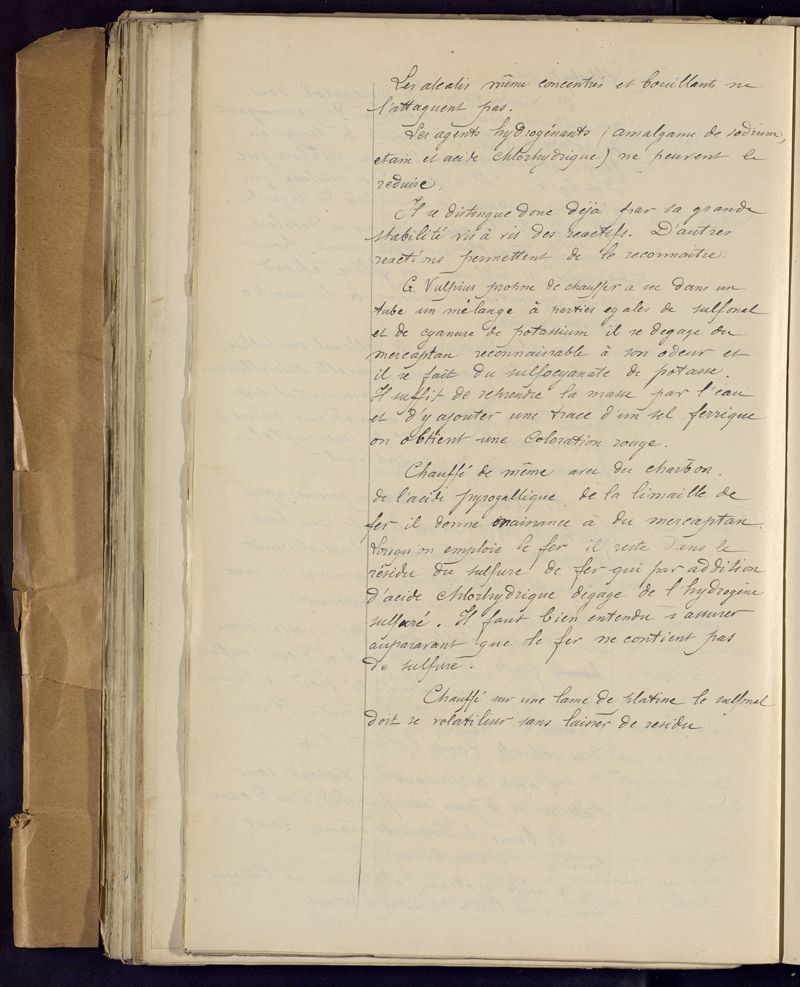 Les alcalis même concentrés et bouillants ne
l'attaquent pas.
Les agents hydrogénants (amalgame de sodium,
etain et acide chlorhydrique) ne peuvent le
réduire.
Il se distingue donc déjà par sa grande
stabilité vis à vis des reactifs. D'autres
reactions permettent de le reconnaitre.
G. Vulpius propose de chauffer a sec dans un
tube un mélange à parties egales de sulfonal
et de cyanure de potassium il se degage du
mercaptan reconnaissable à son odeur et
il se fait du sulfocyanate de potasse.
Il suffit de reprendre la masse par l'eau
et d'y ajouter une trace d'un sel ferrique
on obtient une coloration rouge.
Chauffé de même avec du charbon,
de l'acide pyrogallique, de la limaille de
fer il donne naissance à du mercaptan.
Lorsqu'on emploie le fer il reste dans le
résidu du sulfure de fer qui par addition
d'acide chlorhydrique degage de l'hydrogène
sulfuré. Il faut bien entendu s'assurer
auparavant que le fer ne contient pas
de sulfure.
Chauffé sur une lame de platine le sulfonal
doit se volatiliser sans laisser de residu